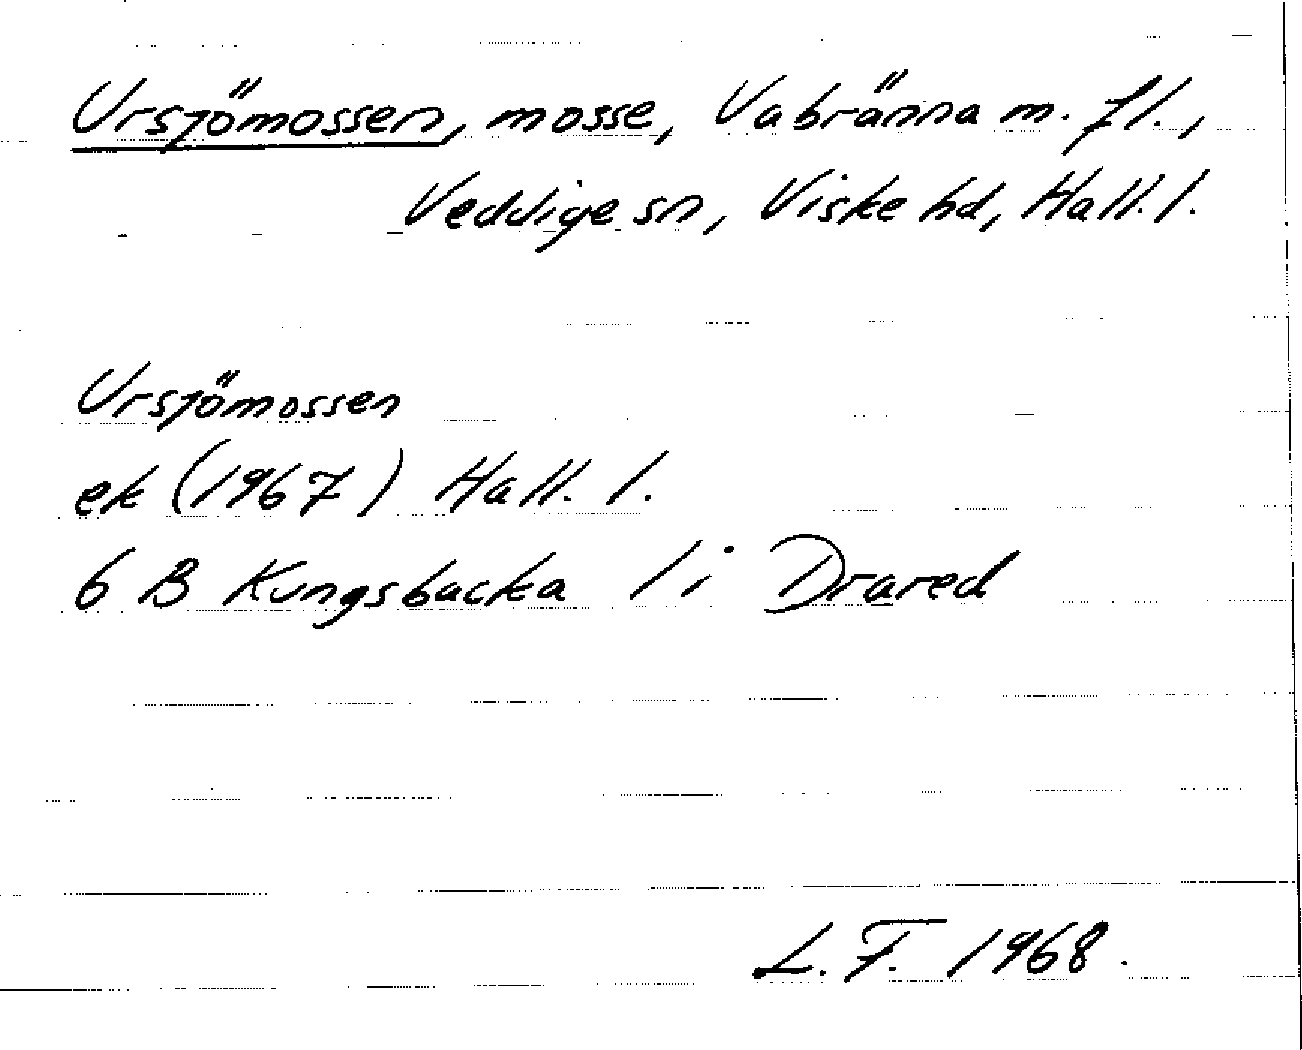 Ursjömossen, mosse, Vabränna m. fl.,
Veddige sn, Viske hd, Hall. l.
Ursjömossen
ek (1967) Hall. l.
6 B Kungsbacka 1 i Drared
L. F. 1968.